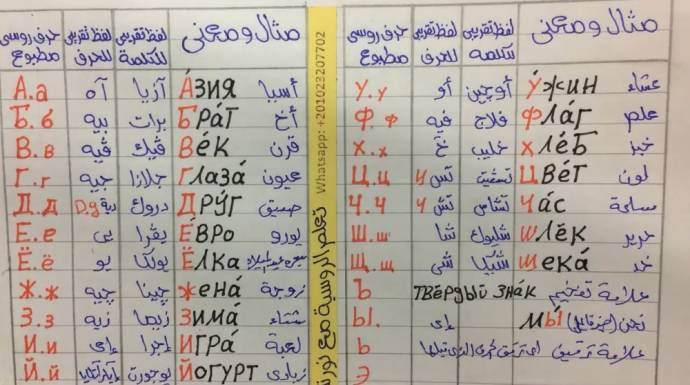 حرف روسى مطبوع لفظ تقريبى للحرف لفظ تقريبى للكلمة مثال ومعنى
А.а آه آزيا А́зия أسيا
Б.б بيه برات Брат أخ
В.в ڤيه ڤيك Ве́к قرن
Г.г جيه جلازا Глаза́ عيون
Д.д دية D.g دروك Дру́г صديق
Е.е يى يڤرا Е́вро يورو
Ё.ё يو يولكا Ёлка
Ж.ж چيه چينا жена́ زوجة
З.з زيه زيما Зима́ شتاء
И.и إى إجرا Игра́ لعبة
Й.й يوجورت Йогурт زبادى
تعلم الروسية مع نور
Whatsapp: +201023207702
حرف روسى مطبوع لفظ تقريبى للحرف لفظ تقريبى للكلمة مثال ومعنى
У.у أو أوچين у́жин عشاء
Ф.ф فيه فلاج Флаг علم
Х.х خ خليب хле́б خبز
Ц.ц تس تسڤيت Цве́т لون
Ч.ч تش تشاس Ча́с ساعة
Ш.ш شا شليوك шёлк حرير
Щ.щ شى شيكا щека́ خد
Ъ твёрдый знак علامة تفخيم
Ы. إى мы́ نحن
Ь علامة ترقيق
Э